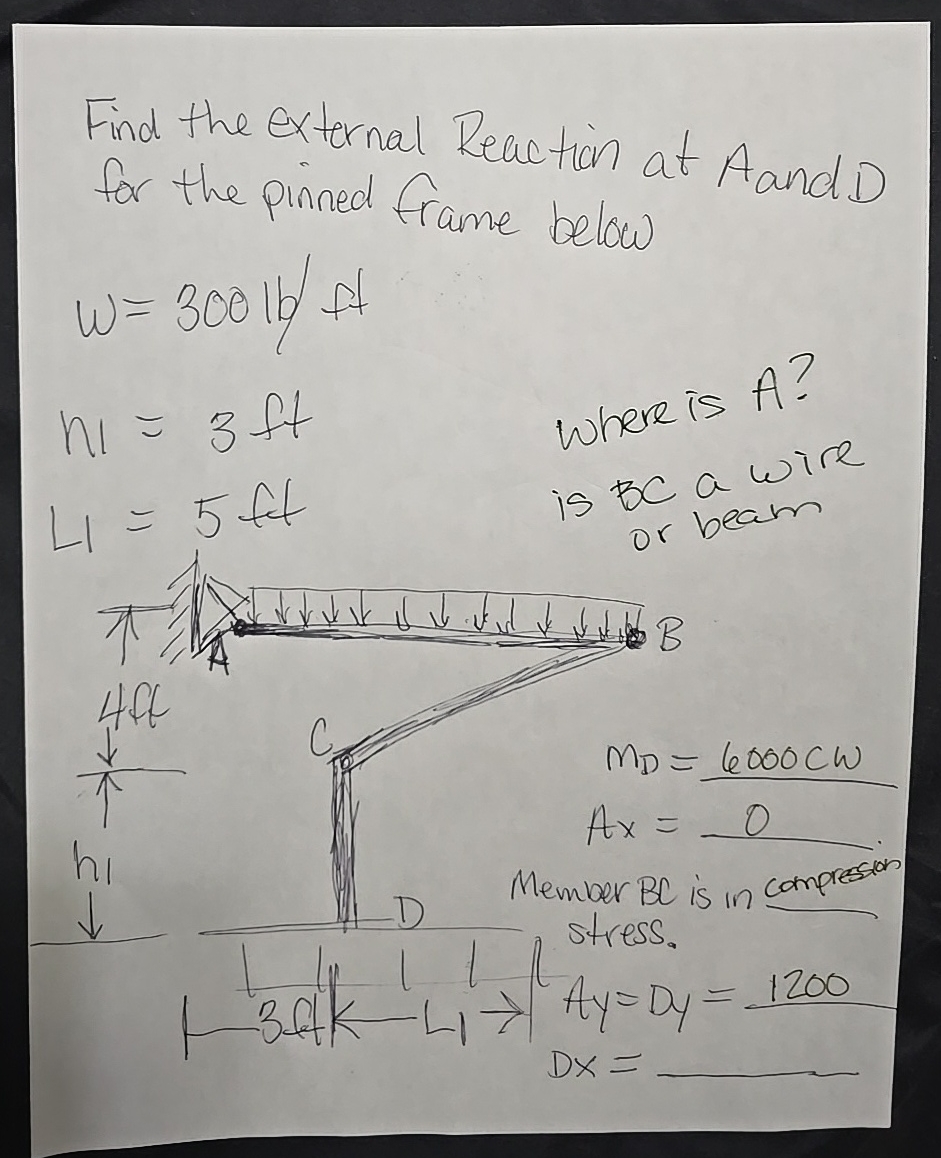 Find the external Reaction at A and D
for the pinned frame below
W = 300 lb/ft
h1 = 3 ft
Where is A?
is BC a wire
or beam
L1 = 5 ft
A
B
4ft
C
MD = 6000 CW
Ax = 0
h1
Member BC is in compression
stress.
D
3ft
L1
Ay = Dy = 1200
Dx =